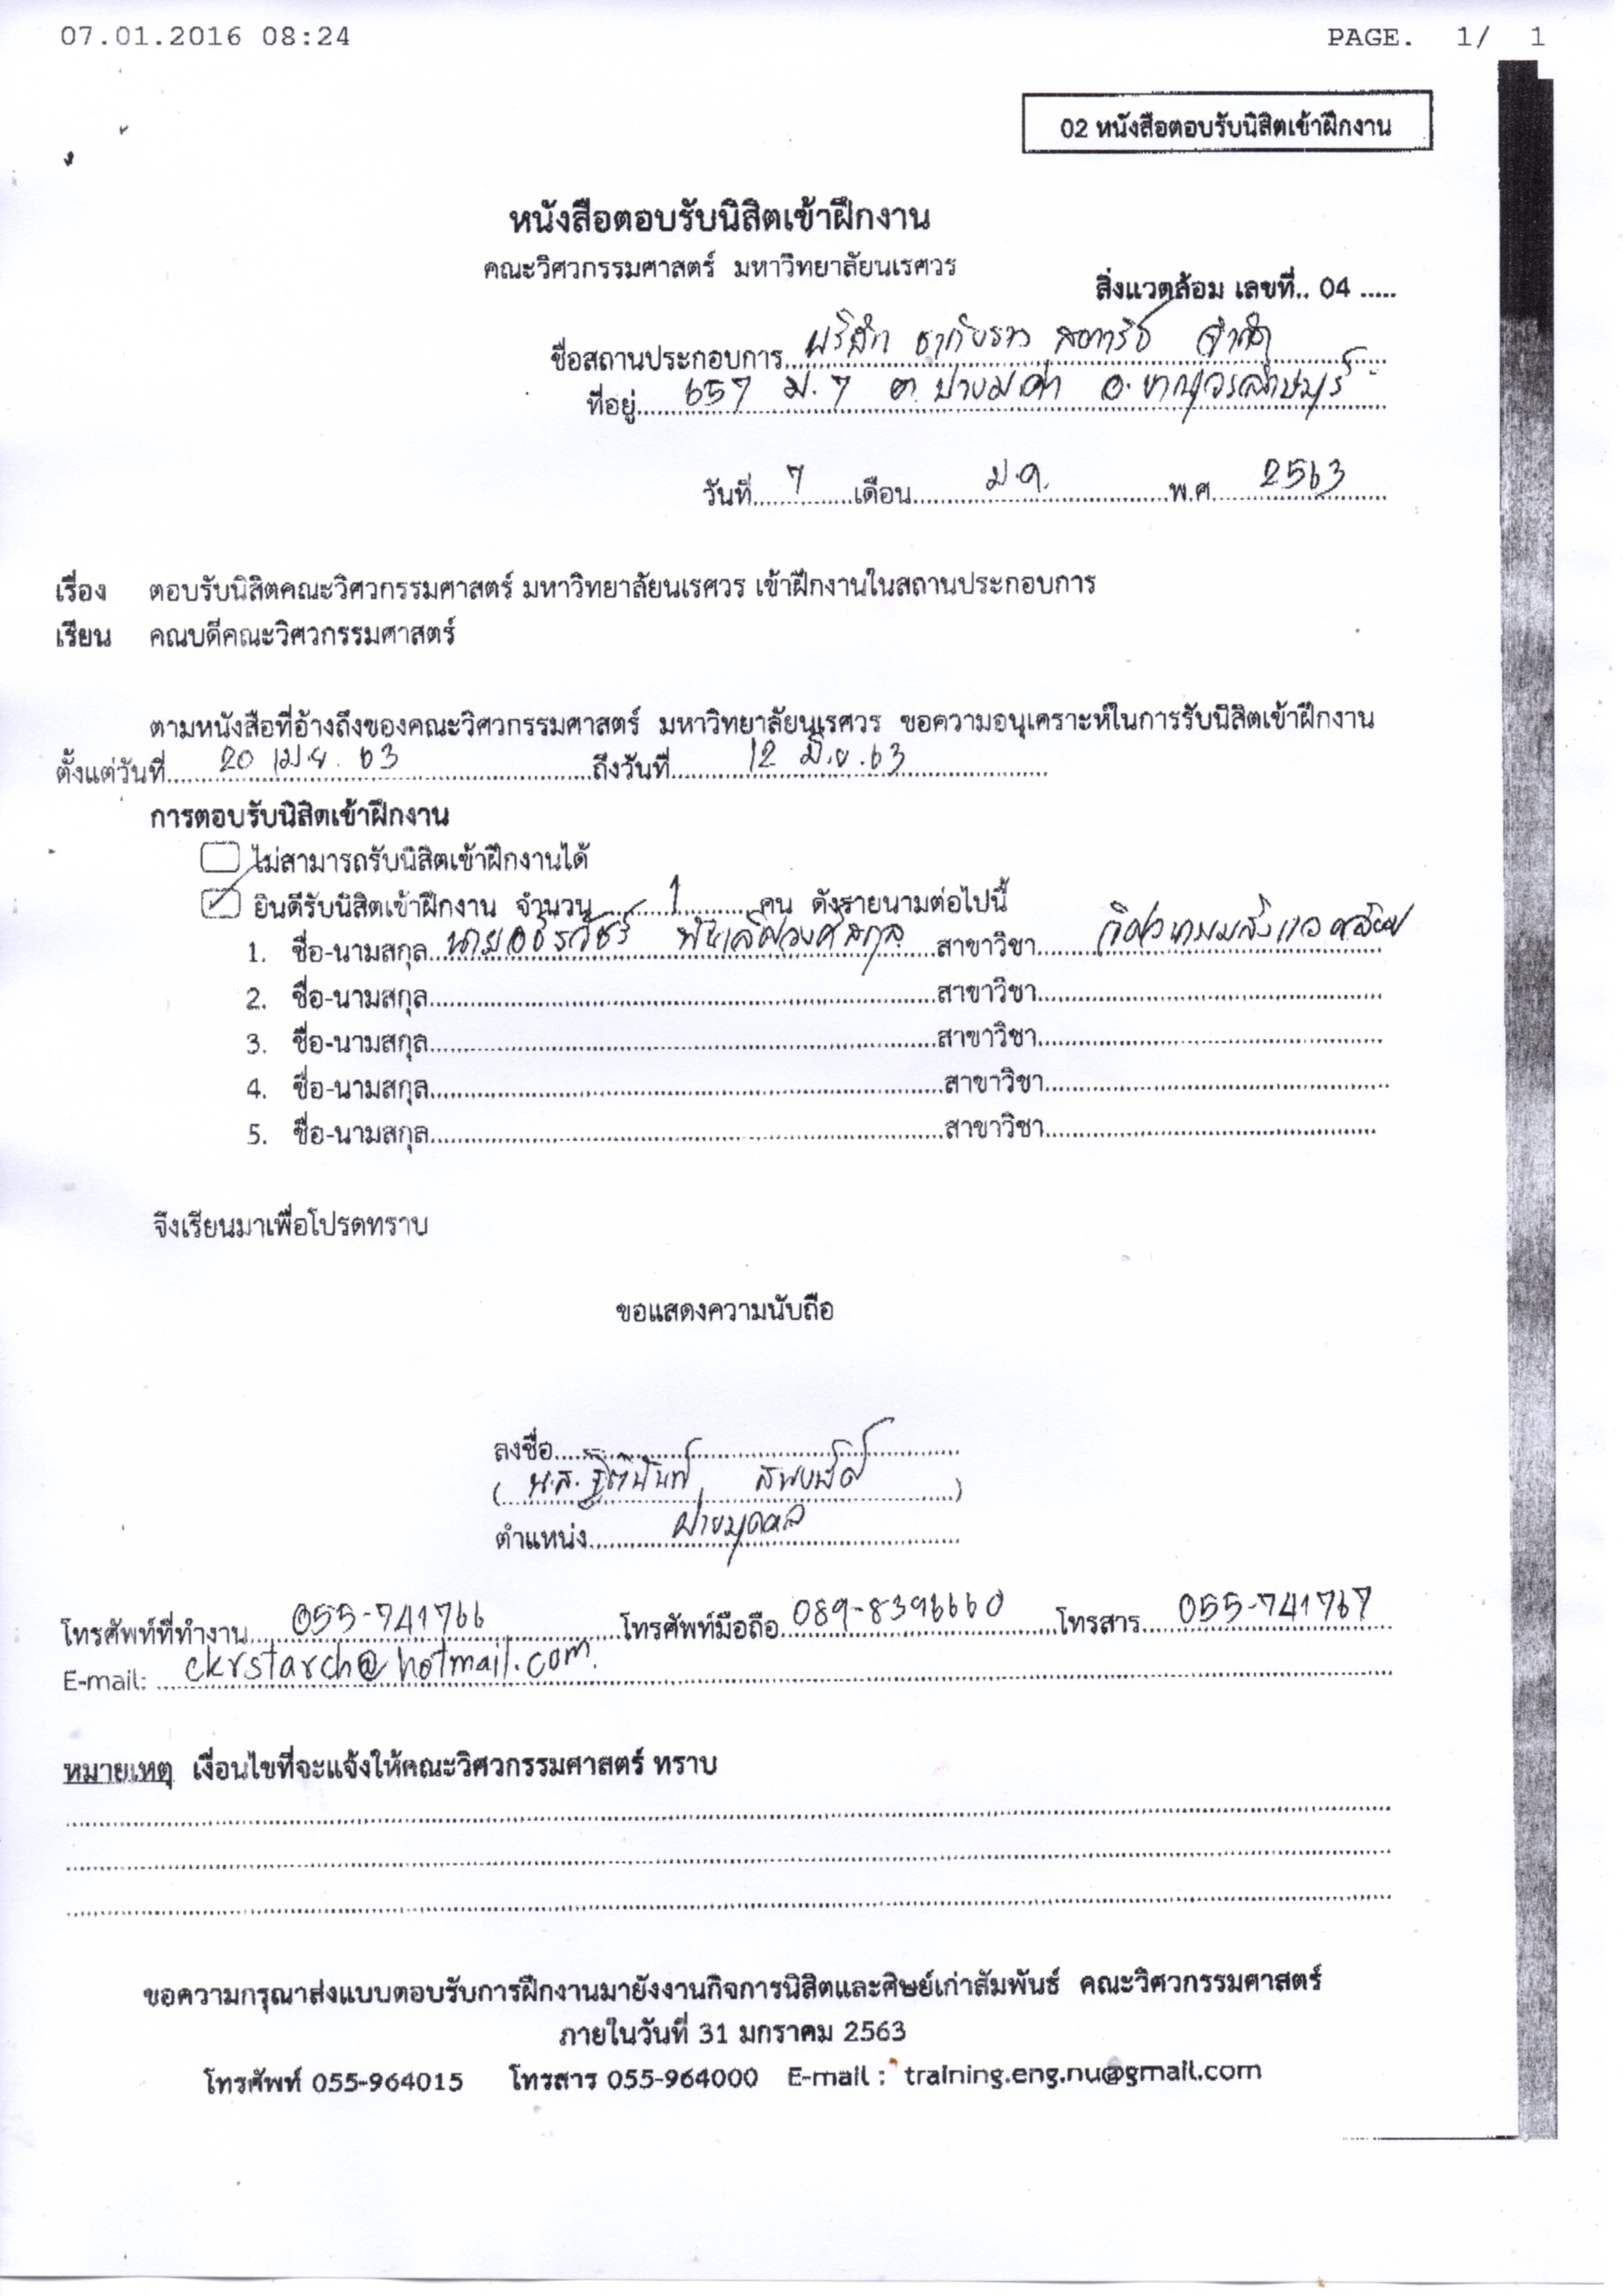 07.01.2016 08:24 PAGE. 1/ 1
02 หนังสือตอบรับนิสิตเข้าฝึกงาน
หนังสือตอบรับนิสิตเข้าฝึกงาน
คณะวิศวกรรมศาสตร์ มหาวิทยาลัยนเรศวร
สิ่งแวดล้อม เลขที่.. 04 .....
ชื่อสถานประกอบการ บริษัท สตาร์ช จำกัด
ที่อยู่ 657 ม.7 ต.ปางมะค่า อ.ขาณุวรลักษบุรี
วันที่ 7 เดือน ม.ค. พ.ศ. 2563
เรื่อง ตอบรับนิสิตคณะวิศวกรรมศาสตร์ มหาวิทยาลัยนเรศวร เข้าฝึกงานในสถานประกอบการ
เรียน คณบดีคณะวิศวกรรมศาสตร์
ตามหนังสือที่อ้างถึงของคณะวิศวกรรมศาสตร์ มหาวิทยาลัยนเรศวร ขอความอนุเคราะห์ในการรับนิสิตเข้าฝึกงาน
ตั้งแต่วันที่ 20 เม.ย. 63 ถึงวันที่ 12 มิ.ย. 63
การตอบรับนิสิตเข้าฝึกงาน
ไม่สามารถรับนิสิตเข้าฝึกงานได้
ยินดีรับนิสิตเข้าฝึกงาน จำนวน 1 คน ดังรายนามต่อไปนี้
1. ชื่อ-นามสกุล นายอธิรวัชร์ พันเลิศวงศ์สกุล สาขาวิชา วิศวกรรมสิ่งแวดล้อม
2. ชื่อ-นามสกุล สาขาวิชา
3. ชื่อ-นามสกุล สาขาวิชา
4. ชื่อ-นามสกุล สาขาวิชา
5. ชื่อ-นามสกุล สาขาวิชา
จึงเรียนมาเพื่อโปรดทราบ
ขอแสดงความนับถือ
ลงชื่อ
( น.ส.ฐิตินันท์ )
ตำแหน่ง ฝ่ายบุคคล
โทรศัพท์ที่ทำงาน 055-741766 โทรศัพท์มือถือ 089-8396660 โทรสาร 055-741767
E-mail: ckrstarch@hotmail.com.
หมายเหตุ เงื่อนไขที่จะแจ้งให้คณะวิศวกรรมศาสตร์ ทราบ
ขอความกรุณาส่งแบบตอบรับการฝึกงานมายังงานกิจการนิสิตและศิษย์เก่าสัมพันธ์ คณะวิศวกรรมศาสตร์
ภายในวันที่ 31 มกราคม 2563
โทรศัพท์ 055-964015 โทรสาร 055-964000 E-mail : training.eng.nu@gmail.com